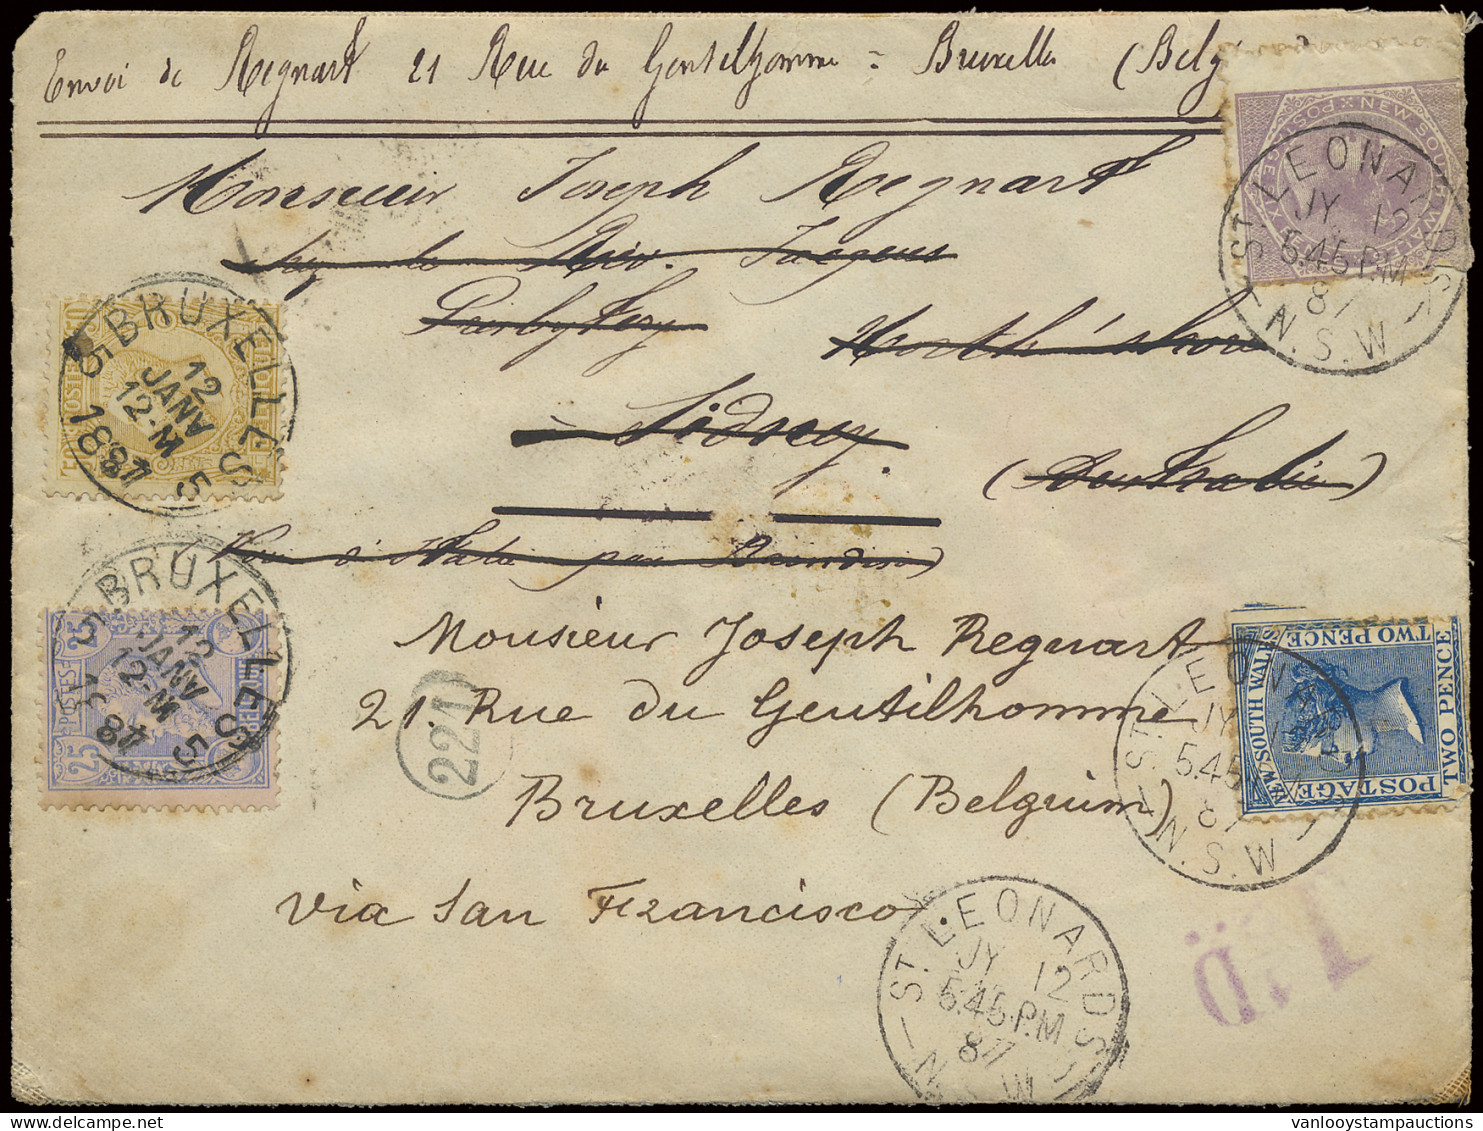 Envoi de Regnart 21 Rue du Gentilhomme = Bruxelles (Belg
Monsieur Joseph Regnart
Rév. Jaegers
North'shore
Sidney.
(Australie)
Monsieur Joseph Regnart
21. Rue du Gentilhomme
Bruxelles (Belgium)
via San Francisco
BRUXELLES 5
12
JANV
12-M
1887
5
BRUXELLES 5
12
JANV
12-M
1887
5
POSTES
25
25
221
NEW SOUTH WALES
ST. LEONARDS
JY 12
5.45 P.M
87
N.S.W
NEW SOUTH WALES
POSTAGE
TWO PENCE
TWO PENCE
ST. LEONARDS
JY 12
5.45 P.M
87
N.S.W
ST. LEONARDS
JY 12
5.45 P.M
87
N.S.W
vanlooystampauctions